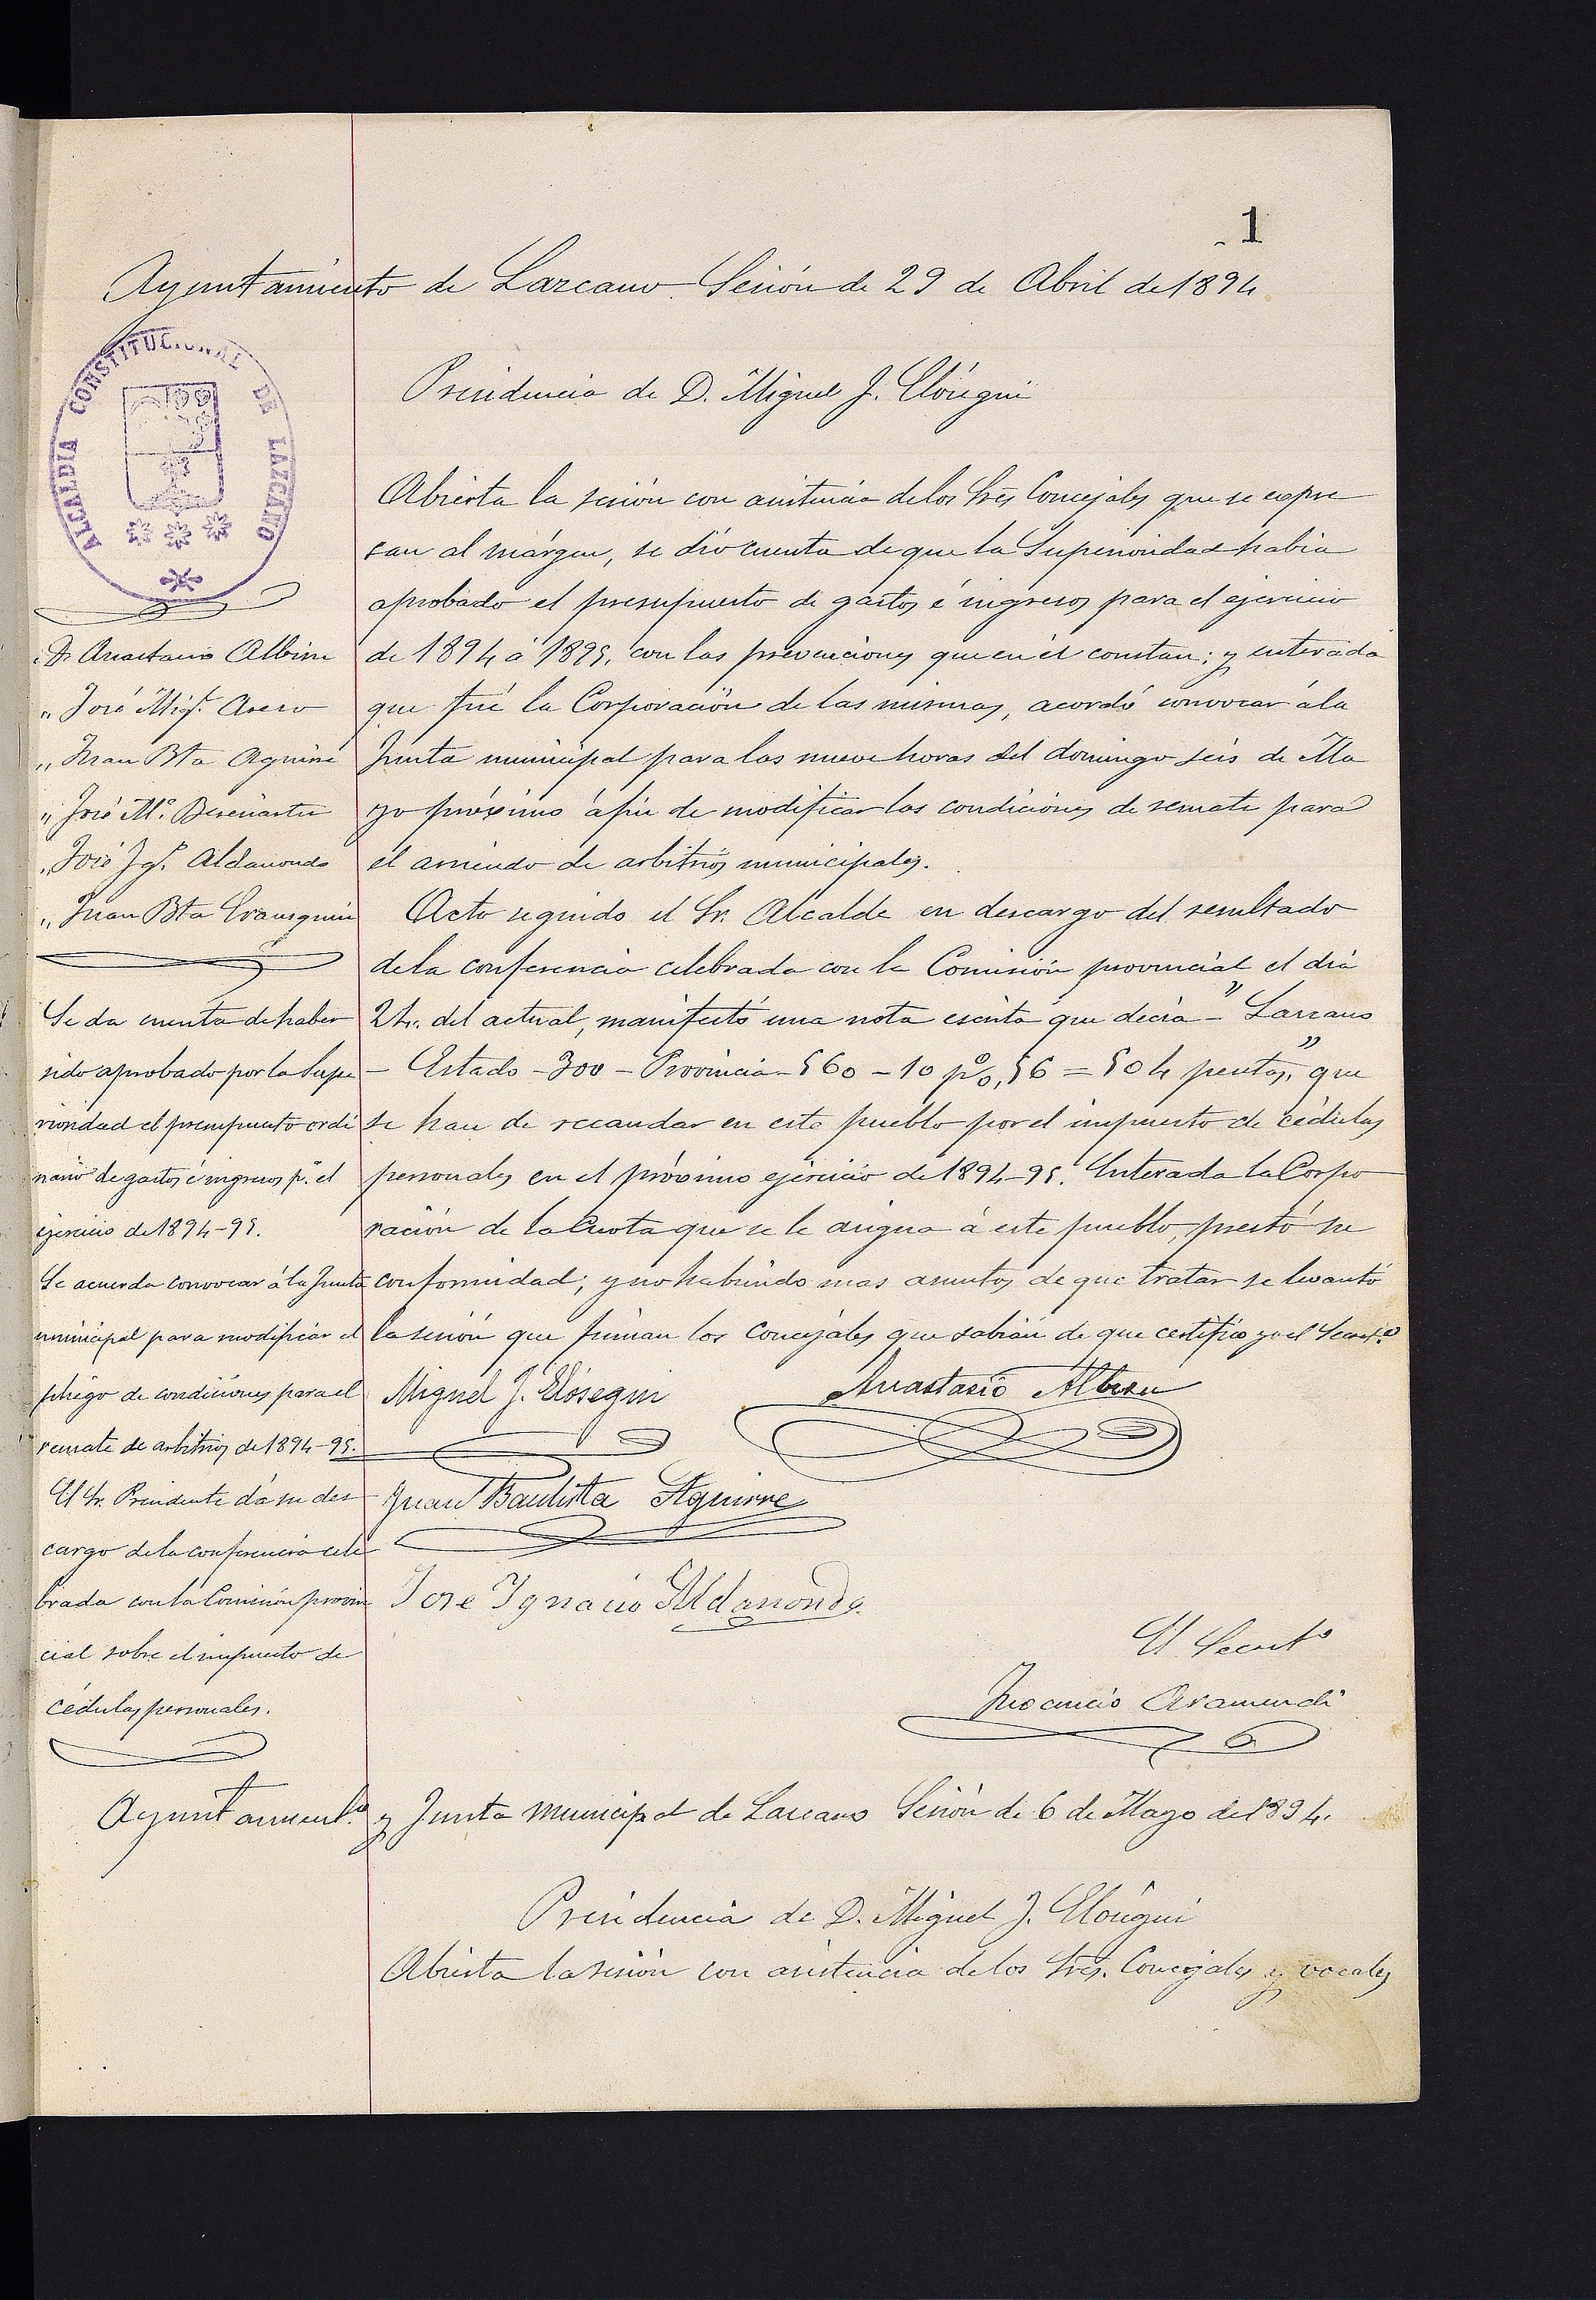 1
Ayuntamiento de Lazcano Sesión de 29 de Abril de 1894
ALCALDIA CONSTITUCIONAL DE LAZCANO
Presidencia de D. Miguel J. Elósegui
D. Anastasio Albisu
" José Mig.l Asero
" Juan Bta Aguirre
" José M.a Beseñartu
" José Ig.o Aldanondo
" Juan Bta Erausquin
Se da cuenta de haber
sido aprobado por la Supe
rioridad el presupuesto ordi
nario de gastos é ingresos p.a el
ejercicio de 1894-95.
Se acuerda convocar á la Junta
municipal para modificar el
pliego de condiciones para el
remate de arbitrios de 1894-95.
El Sr. Presidente dá su des
cargo de la conferencia cele
brada con la Comisión provin
cial sobre el impuesto de
cédulas personales.
Abierta la sesión con asistencia de los Sres Concejales que se expre
san al márgen, se dió cuenta de que la Superioridad habia
aprobado el presupuesto de gastos é ingresos para el ejercicio
de 1894 á 1895, con las prevenciones que en él constan; y enterada
que fué la Corporación de las mismas, acordó convocar á la
Junta municipal para las nueve horas del domingo seis de Ma
yo próximo á fin de modificar las condiciones de remate para
el arriendo de arbitrios municipales.
Acto seguido el Sr. Alcalde en descargo del resultado
de la conferencia celebrada con la Comisión provincial el dia
24. del actual, manifestó una nota escrita que decia - "Lazcano
- Estado - 300 - Provincia - 560 - 10 p%, 56 = 504 pesetas," que
se han de recaudar en este pueblo por el impuesto de cédulas
personales en el próximo ejercicio de 1894-95. Enterada la Corpo
ración de la Cuota que se le asigna á este pueblo, prestó su
conformidad; y no habiendo mas asuntos de que tratar se levantó
la sesión que firman los concejales que sabian de que certifico yo el Secret.o
Miguel J. Elósegui
Anastasio Albisu
Juan Bautista Aguirre
Jose Ignacio Aldanondo
El Secret.o
Inocencio Aramendi
Ayuntamient.o y Junta municipal de Lazcano Sesión de 6 de Mayo de 1894.
Presidencia de D. Miguel J. Elósegui
Abierta la sesión con asistencia de los Sres. Concejales y vocales